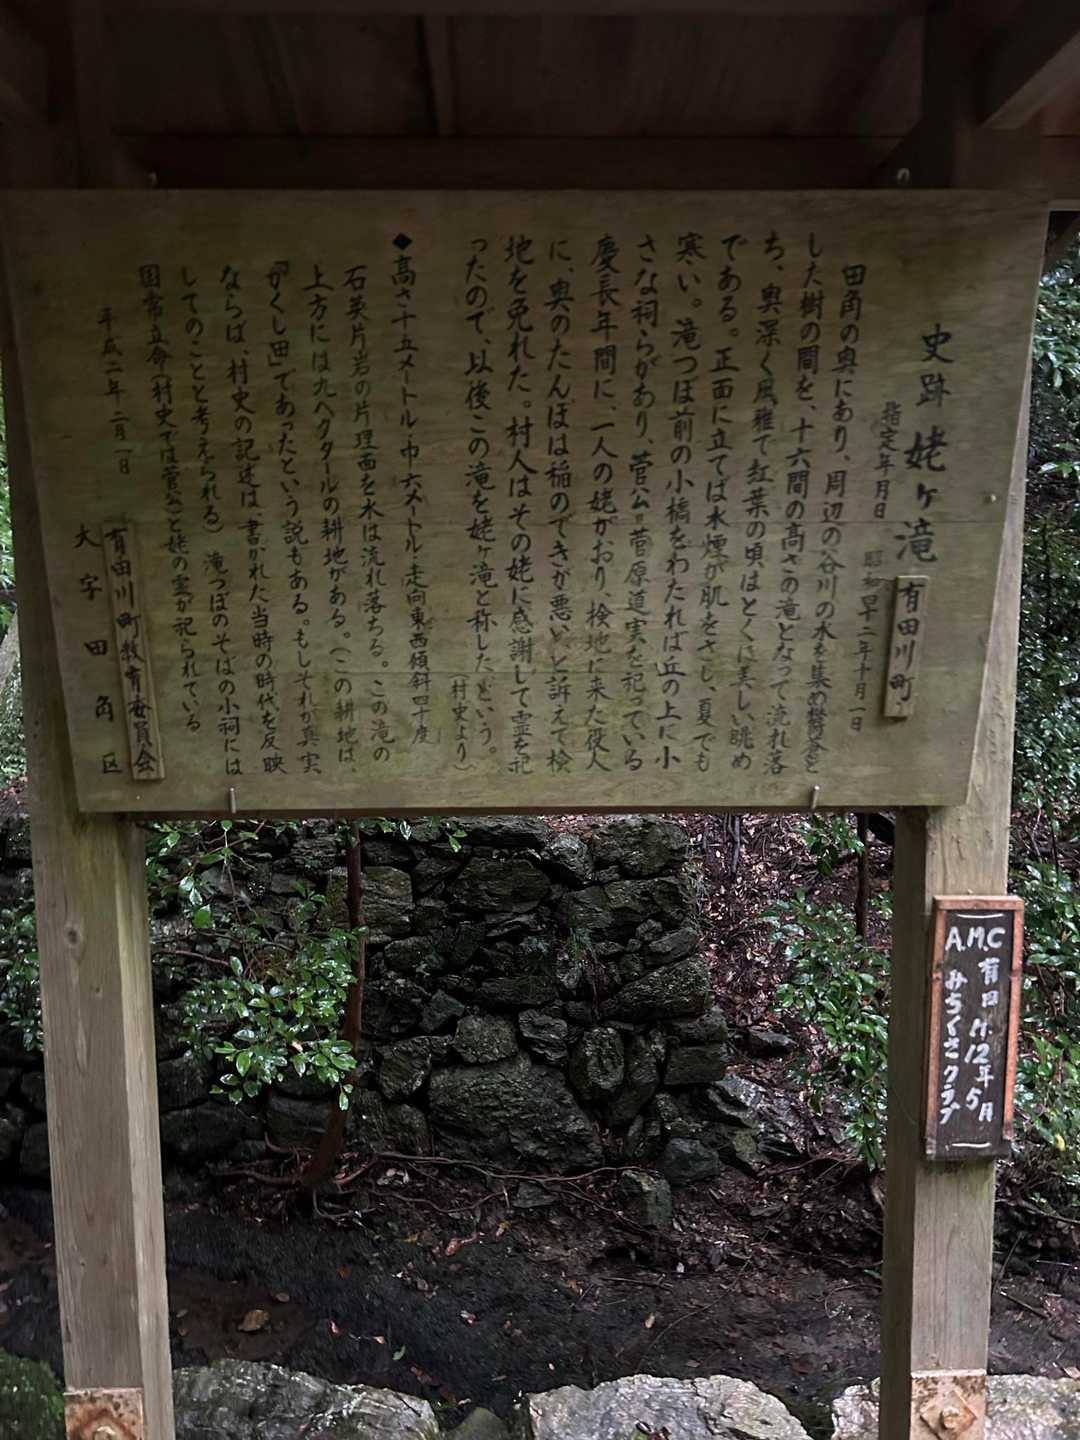 史跡 姥ヶ滝 有田川町
指定年月日 昭和四十二年十月一日
田角の奥にあり、周辺の谷川の水を集め鬱蒼と
した樹の間を、十六間の高さの滝となって流れ落
ち、奥深く風雅で紅葉の頃はとくに美しい眺め
である。正面に立てば水煙が肌をさし、夏でも
寒い。滝つぼ前の小橋をわたれば丘の上に小
さな祠らがあり、菅公=菅原道実を祀っている
慶長年間に、一人の姥がおり、検地に来た役人
に、奥のたんぼは稲のできが悪いと訴えて検
地を免れた。村人はその姥に感謝して霊を祀
ったので、以後この滝を姥ヶ滝と称したという。
(村史より)
◆高さ十五メートル・巾六メートル・走向東西傾斜四十度
石英片岩の片理面を水は流れ落ちる。この滝の
上方には九ヘクタールの耕地がある。(この耕地は、
「かくし田」であったという説もある。もしそれが真実
ならば、村史の記述は書かれた当時の時代を反映
してのことと考えられる) 滝つぼのそばの小祠には
国常立命(村史では菅公)と姥の霊が祀られている
平成二年二月一日
有田川町教育委員会
大字田角区
A.M.C 有田川12年5月
みちくさクラブ